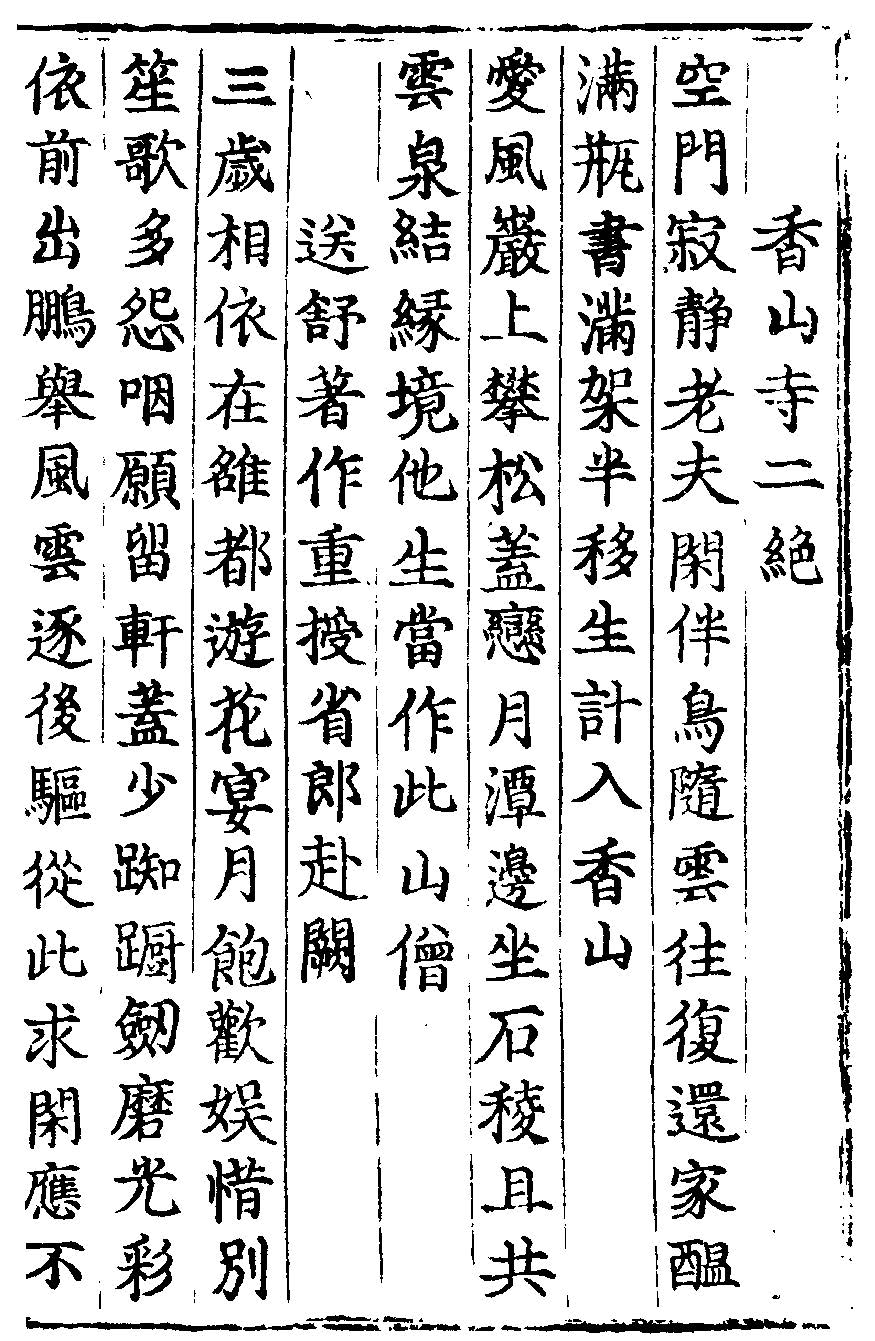 香山寺二絶
空門寂静老夫閑伴鳥隨雲往復還家醖
滿瓶書滿架半移生計入香山
愛風巖上攀松蓋戀月潭邊坐石稜且共
雲泉結緣境他生當作此山僧
送舒著作重授省郎赴闕
三歲相依在雒都遊花宴月飽歡娛惜別
笙歌多怨咽願留軒蓋少踟躕劒磨光彩
依前出鵬舉風雲逐後驅從此求閑應不